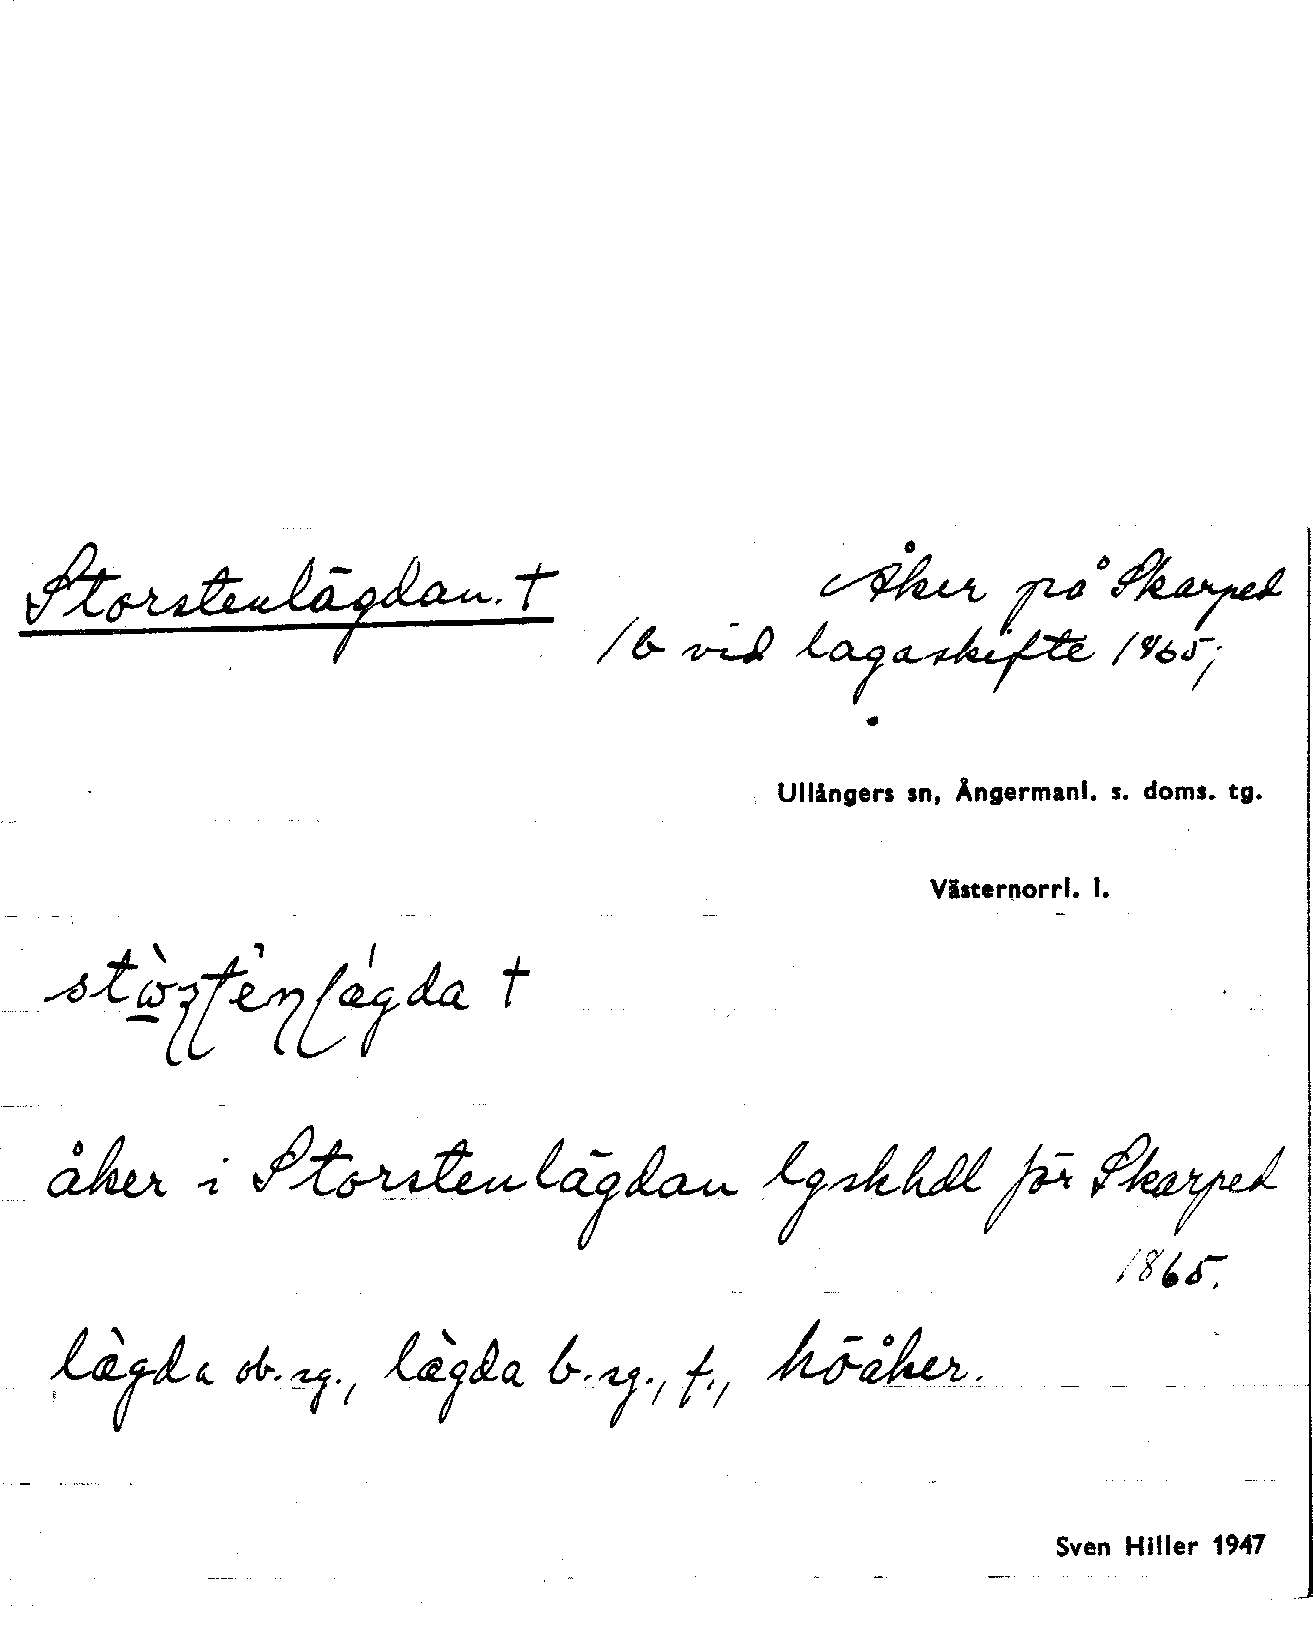 Storstenlägdan. †
Åker på Skarped
1b vid lagaskifte 1865;
Ullångers sn, Ångermanl. s. doms. tg.
Västernorrl. l.
åker i Storstenlägdan lgskhdl för Skarped
1865.
lægda ob. sg., lægda b. sg., f., höåker.
Sven Hiller 1947